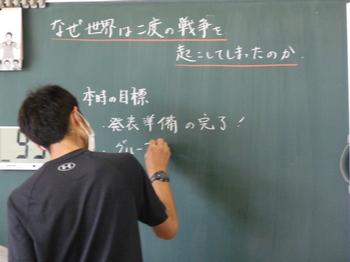 なぜ世界は二度の戦争を
起こしてしまったのか
本時の目標
・発表準備の完了!
・グルー